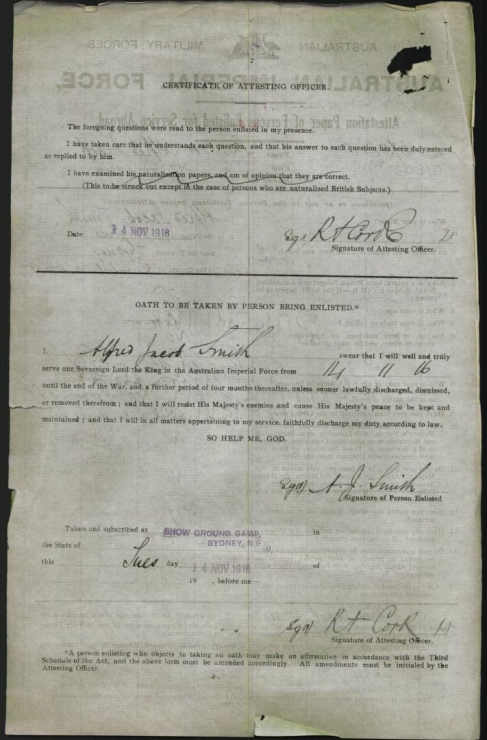 CERTIFICATE OF ATTESTING OFFICER.
The foregoing questions were read to the person enlisted in my presence.
I have taken care that he understands each question, and that his answer to each question has been duly entered
as replied to by him.
I have examined his naturalization papers, and am of opinion that they are correct.
(This to be struck out except in the case of persons who are naturalized British Subjects.)
Date 14 NOV 1916
Sgd R A Cork
Signature of Attesting Officer.
OATH TO BE TAKEN BY PERSON BEING ENLISTED.*
I, Alfred Jacob Smith swear that I will well and truly
serve our Sovereign Lord the King in the Australian Imperial Force from 14 11 16
until the end of the War, and a further period of four months thereafter, unless sooner lawfully discharged, dismissed,
or removed therefrom ; and that I will resist His Majesty's enemies and cause His Majesty's peace to be kept and
maintained ; and that I will in all matters appertaining to my service, faithfully discharge my duty according to law.
SO HELP ME, GOD.
Sgd) A. J. Smith
Signature of Person Enlisted
Taken and subscribed at SHOW GROUND CAMP in
SYDNEY, N.S
the State of
this Tues day 14 NOV 1916 of
19 , before me—
Sgd R A Cork
Signature of Attesting Officer.
*A person enlisting who objects to taking an oath may make an affirmation in accordance with the Third
Schedule of the Act, and the above form must be amended accordingly. All amendments must be initialed by the
Attesting Officer.